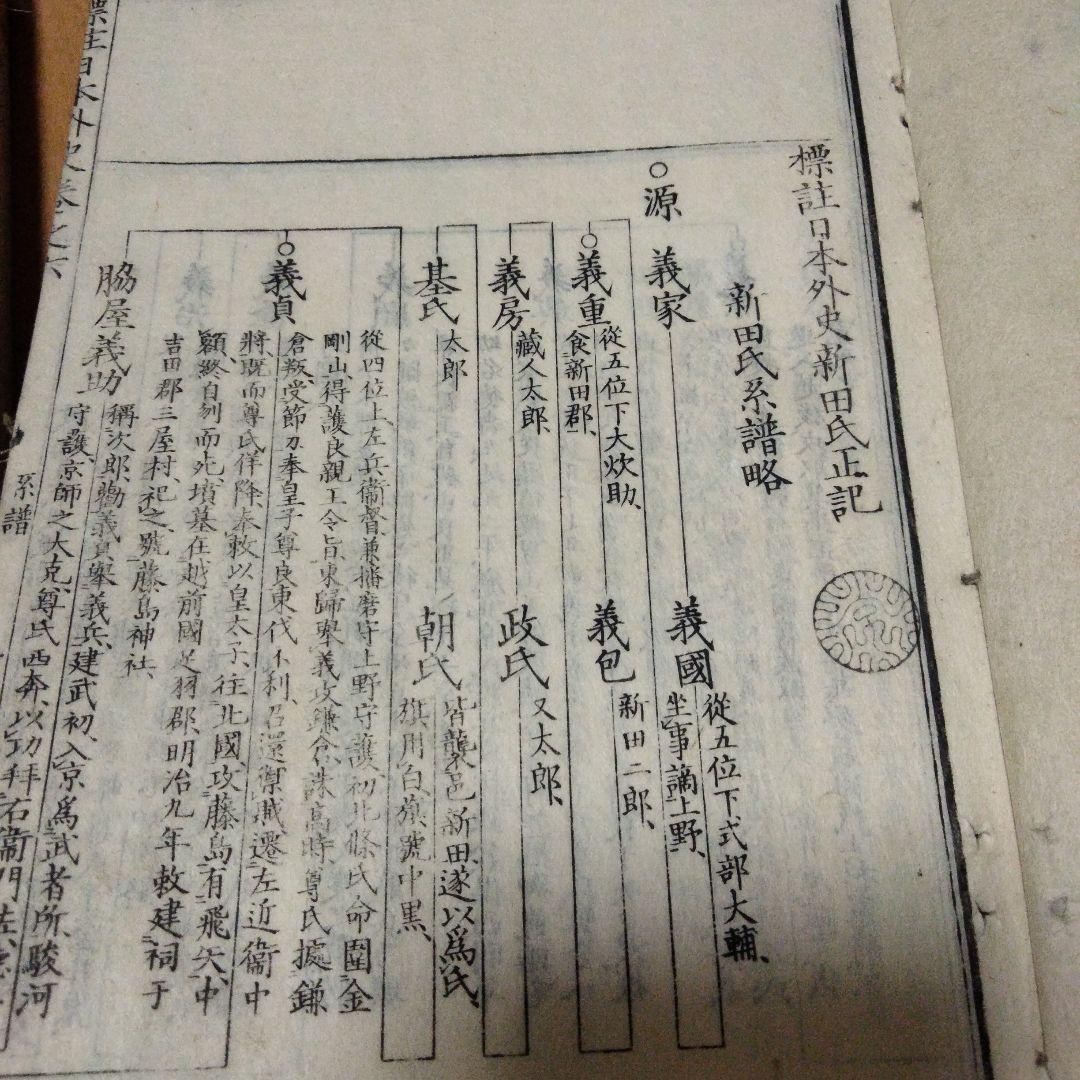 標註日本外史新田氏正記
新田氏系譜略
源
義家
義國
從五位下式部大輔、
坐事謫上野、
義重
從五位下大炊助、
食新田郡、
義包
新田二郎、
義房
藏人太郎、
政氏
又太郎、
基氏
太郎
朝氏
皆襲邑新田、遂以爲氏、
旗用白旗、號中黒、
義貞
從四位上、左兵衞督、兼播磨守上野守護、初北條氏命圍金
剛山、得護良親王令旨、東歸擧義、攻鎌倉、誅高時、尊氏據鎌
倉叛、受節刀奉皇子尊良東伐、不利、召還禦賊、遷左近衞中
將、既而尊氏佯降、奉敕以皇太子、往北國、攻藤島、有飛矢、中
額、終自刎而死、墳墓在越前國足羽郡、明治九年敕建祠于
吉田郡三屋村、祀之、號藤島神社、
脇屋義助
稱次郎、勸義貞擧義兵、建武初、入京爲武者所、駿河
守護、京師之大克、尊氏西奔、以功拜右衞門佐、
系譜
標註日本外史卷之六